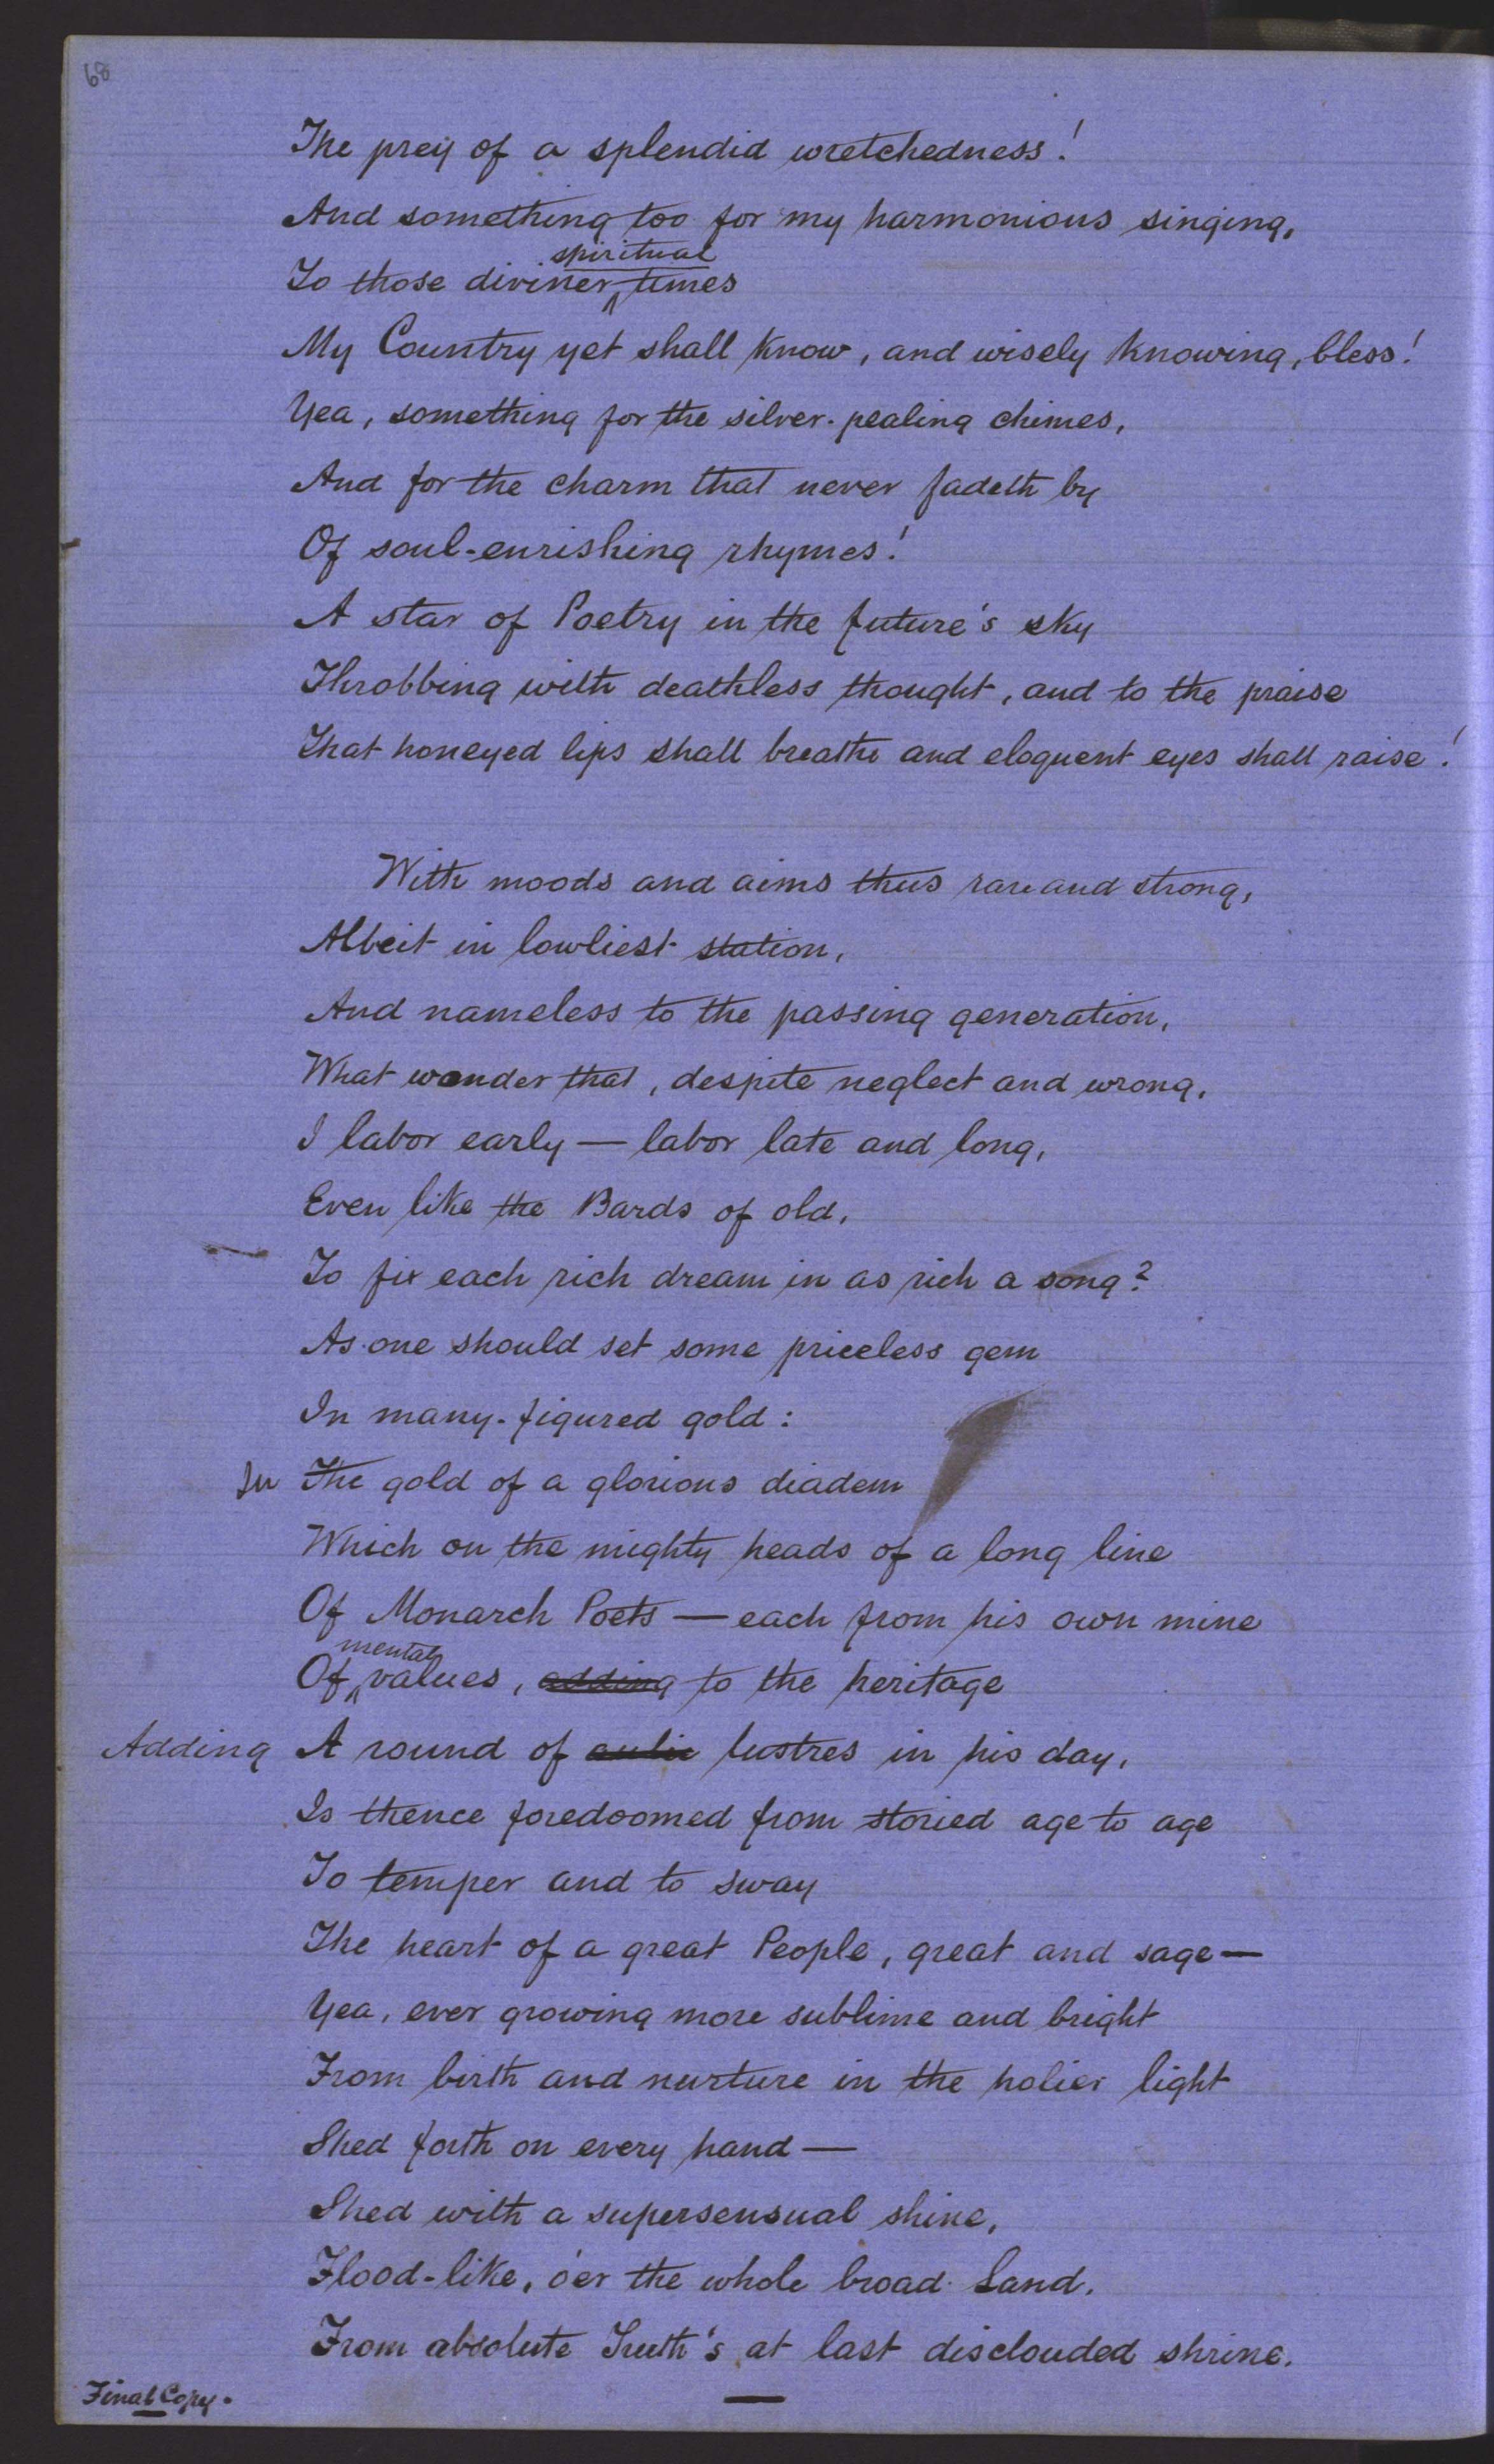 68
The prey of a splendid wretchedness!
And something too for my harmonious singing,
spiritual
To those diviner ‸ times
My Country yet shall know, and wisely knowing, bless!
Yea, something for the silver-pealing chimes,
And for the charm that never fadeth by
Of soul-enrishing rhymes!
A star of Poetry in the future's sky
Throbbing with deathless thought, and to the praise
That honeyed lips shall breathe and eloquent eyes shall raise!
With moods and aims thus rare and strong,
Albeit in lowliest station,
And nameless to the passing generation,
What wonder that, despite neglect and wrong,
I labor early — labor late and long,
Even like the Bards of old,
To fix each rich dream in as rich a song?
As one should set some priceless gem
In many-figured gold:
In The gold of a glorious diadem
Which on the mighty heads of a long line
Of Monarch Poets — each from his own mine
mental
Of ‸ values, adding to the heritage
Adding A round of lustres in his day,
Is thence foredoomed from storied age to age
To temper and to sway
The heart of a great People, great and sage —
Yea, ever growing more sublime and bright
From birth and nurture in the holier light
Shed forth on every hand —
Shed with a supersensual shine,
Flood-like, o'er the whole broad Land,
From absolute Truth's at last disclouded shrine.
Final Copy.